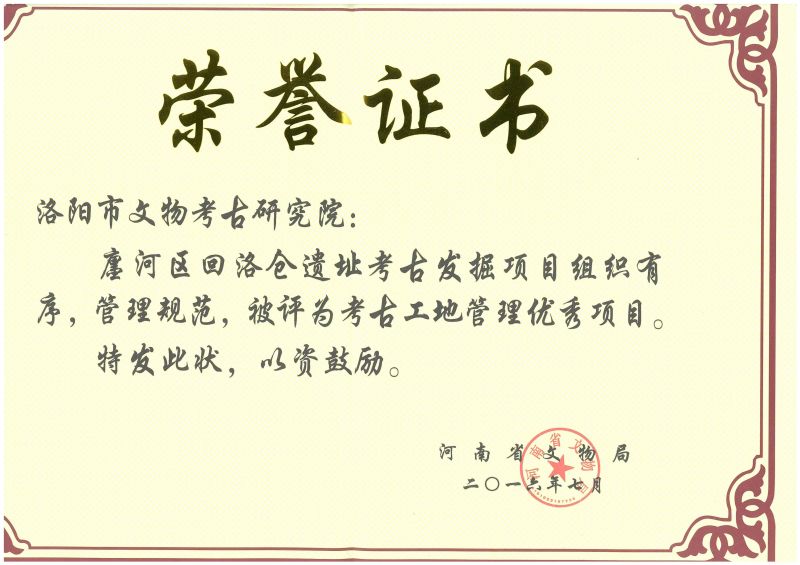 荣誉证书
洛阳市文物考古研究院：
廛河区回洛仓遗址考古发掘项目组织有
序，管理规范，被评为考古工地管理优秀项目。
特发此状，以资鼓励。
河南省文物局
二〇一六年七月
河南省文物局